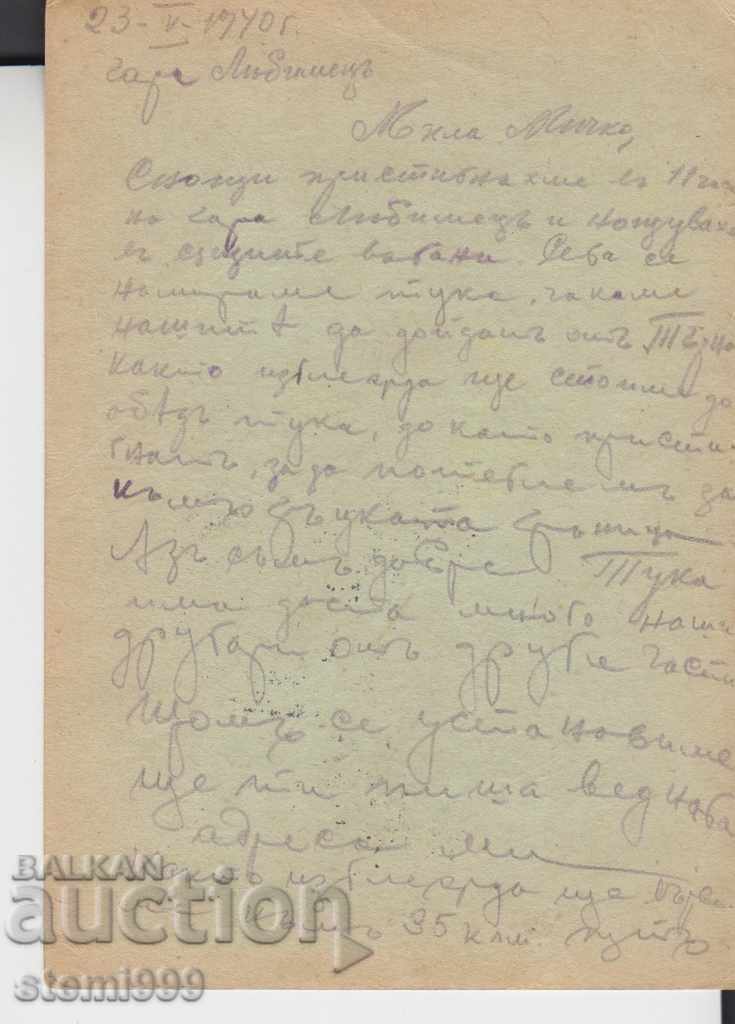 23-V-1940 г.
гара Любимецъ
Мила Мичко,
Снощи пристигнахме въ 11 часа
на гара Любимецъ и нощувахме
въ същите вагони. Сега се
намираме тука, чакаме
нашитѣ да дойдатъ отъ Търно
Както изглежда ще стоиме до
обѣдъ тука, до като присти-
гнатъ, за да потеглимъ за
къмъ гръцката граница
Азъ съмъ добре. Тука
има доста много наши
другари отъ други части
Щомъ се установиме
ще ти пиша веднага
адреса ми
Както изглежда ще вървим
къмъ 35 клм. пѫть
BALKAN
auction
stemi999